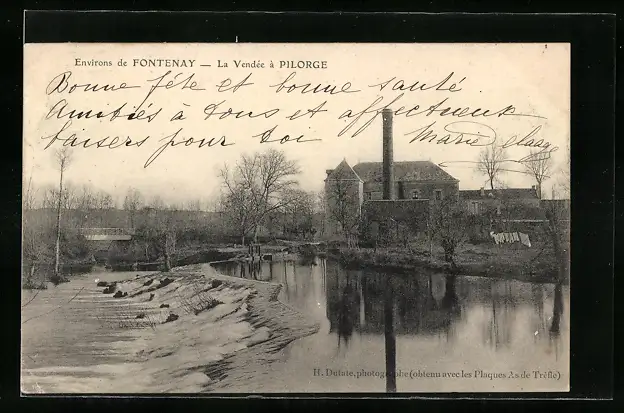 Environs de FONTENAY — La Vendée à PILORGE
Bonne fête et bonne santé
Amitiés à tous et affectueux
baisers pour toi
Marie
photographe (obtenu avec les Plaques As de Trèfle)